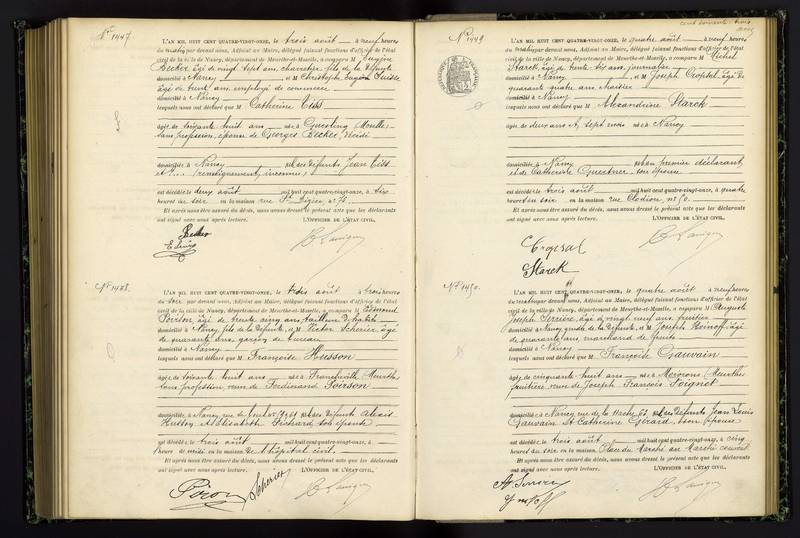 N° 1447.
L'AN MIL HUIT CENT QUATRE-VINGT-ONZE, le trois août à neuf heures
du matin par devant nous, Adjoint au Maire, délégué faisant fonctions d'officier de l'état
civil de la ville de Nancy, département de Meurthe-et-Moselle, a comparu M Eugène
Becker âgé de vingt sept ans, charretier fils de la défunte
domicilié à Nancy et M Christophe Eugène
âgé de trente ans, employé de commerce
domicilié à Nancy
lesquels nous ont déclaré que M Catherine
âgée de soixante huit ans née à (Moselle)
sans profession, épouse de Georges Becker,
domiciliée à Nancy des défunts Jean
et (renseignements inconnus)
est décédée le deux août mil huit cent quatre-vingt-onze, à six
heures du soir en la maison rue St Dizier, n° 75
Et après nous être assuré du décès, nous avons dressé le présent acte que les déclarants
ont signé avec nous après lecture. L'OFFICIER DE L'ÉTAT CIVIL,
Becker
N° 1448.
L'AN MIL HUIT CENT QUATRE-VINGT-ONZE, le trois août à trois heures
du soir par devant nous, Adjoint au Maire, délégué faisant fonctions d'officier de l'état
civil de la ville de Nancy, département de Meurthe-et-Moselle, a comparu M Edmond
Poirson, âgé de trente cinq ans, tailleur d'habits
domicilié à Nancy, fils de la défunte et M Victor Scherier âgé
de quarante ans, garçon de bureau
domicilié à Nancy
lesquels nous ont déclaré que M Françoise Husson
âgée de soixante huit ans née à Francheville Meurthe
sans profession, veuve de Ferdinand Poirson
domiciliée à Nancy, rue des défunts
Husson Elisabeth son épouse
est décédée le trois août mil huit cent quatre-vingt-onze, à
heure de midi en la maison de l'hôpital civil.
Et après nous être assuré du décès, nous avons dressé le présent acte que les déclarants
ont signé avec nous après lecture. L'OFFICIER DE L'ÉTAT CIVIL,
Scherier
cent soixante trois
N° 1449.
L'AN MIL HUIT CENT QUATRE-VINGT-ONZE, le quatre août à neuf heures
du matin par devant nous, Adjoint au Maire, délégué faisant fonctions d'officier de l'état
civil de la ville de Nancy, département de Meurthe-et-Moselle, a comparu M Michel
Starck, âgé de trente six ans, journalier
domicilié à Nancy et M Joseph Cropsal âgé de
quarante quatre ans
domicilié à Nancy
lesquels nous ont déclaré que M Alexandrine Starck
âgée de deux ans, sept mois née à Nancy
domiciliée à Nancy du premier déclarant
et de Catherine son épouse
est décédée le trois août mil huit cent quatre-vingt-onze, à quatre
heures du soir en la maison rue Clodion, n° 50.
Et après nous être assuré du décès, nous avons dressé le présent acte que les déclarants
ont signé avec nous après lecture. L'OFFICIER DE L'ÉTAT CIVIL,
Cropsal
Starck
N° 1450.
L'AN MIL HUIT CENT QUATRE-VINGT-ONZE, le quatre août à neuf heures
du matin par devant nous, Adjoint au Maire, délégué faisant fonctions d'officier de l'état
civil de la ville de Nancy, département de Meurthe-et-Moselle, a comparu M Auguste
Joseph âgé de vingt neuf ans,
domicilié à Nancy gendre de la défunte et M Joseph âgé
de quarante ans, marchand de fruits
domicilié à Nancy
lesquels nous ont déclaré que M Françoise Gauvain
âgée de cinquante huit ans née à (Meurthe)
fruitière, veuve de Joseph François Poignet
domiciliée à Nancy, rue de la des défunts Jean Louis
Gauvain et Catherine Gérard, son épouse
est décédée le trois août mil huit cent quatre-vingt-onze, à cinq
heures du soir en la maison Place du Marché au Marché couvert
Et après nous être assuré du décès, nous avons dressé le présent acte que les déclarants
ont signé avec nous après lecture. L'OFFICIER DE L'ÉTAT CIVIL,